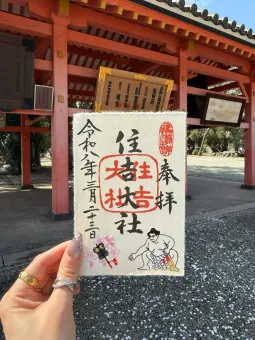 奉拝
住吉大社
住吉
大社
令和八年三月二十三日